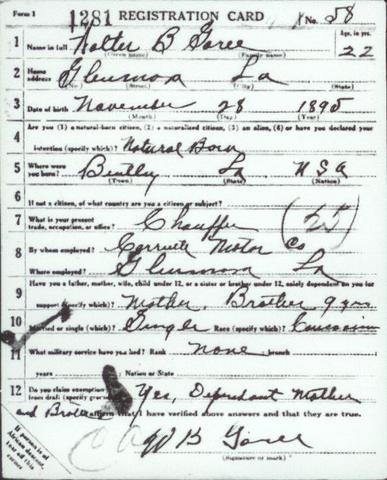 Form 1 1281 REGISTRATION CARD No. 58
1 Name in full Walter B Goree Age, in yrs. 22
(Given name) (Family name)
2 Home address Glenmora La
(No.) (Street) (City) (State)
3 Date of birth November 28 1895
(Month) (Day) (Year)
4 Are you (1) a natural-born citizen, (2) a naturalized citizen, (3) an alien, (4) or have you declared your
intention (specify which)? Natural Born
5 Where were you born? Bentley La USA
(Town) (State) (Nation)
6 If not a citizen, of what country are you a citizen or subject?
7 What is your present trade, occupation, or office? Chauffer (25)
8 By whom employed? Motor Co
Where employed? Glenmora La
9 Have you a father, mother, wife, child under 12, or a sister or brother under 12, solely dependent on you for
support (specify which)? Mother, Brother 9 yrs
10 Married or single (which)? Single Race (specify which)? Caucasian
11 What military service have you had? Rank none branch
years Nation or State
12 Do you claim exemption from draft (specify grounds)? Yes, Dependant Mother
and Brother affirm that I have verified above answers and that they are true.
W B Goree
(Signature or mark)
If person is of African descent, tear off this corner